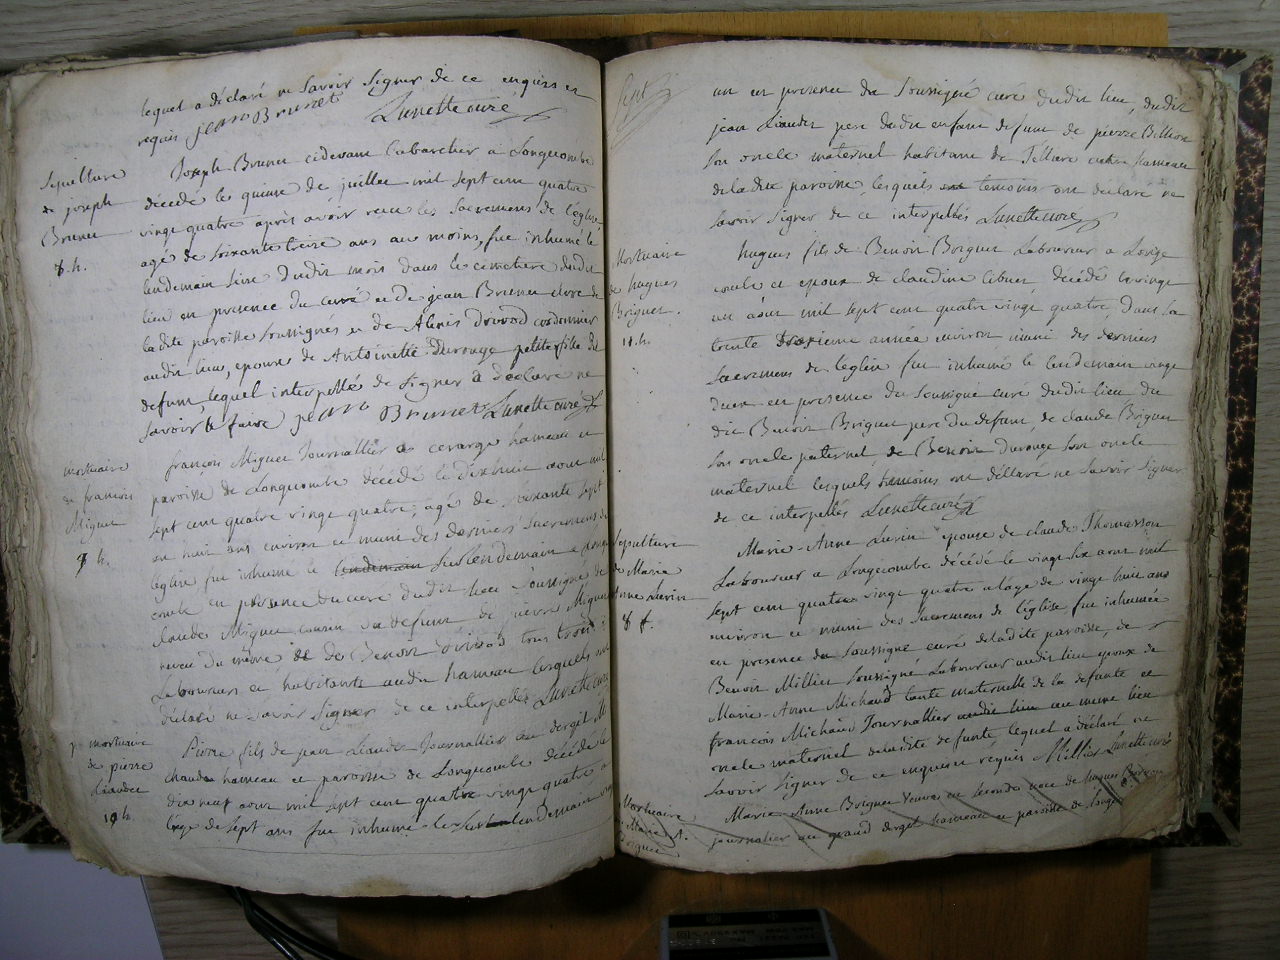 lequel a déclaré ne savoir signer de ce enquis et
requis jean Brunet Lunette curé
Sepulture
de joseph
Brunet
8. h.
Joseph Brunet cidevant Cabaretier a Longecombe
décédé le quinze de juillet mil sept cent quatre
vingt quatre aprit avoir recu les Sacremens de l'église
agé de soixante treize ans au moins, fut inhumé le
lendemain seize dudit mois dans le cimetiere dudit
lieu en presence du curé et de jean Brunet clerc de
la dite paroisse soussignés et de Alexis Drivod cordonnier
audit lieu, epoux de Antoinette Durouge petite fille du
defunt, lequel interpellé de signer a declaré ne
savoir le faire jean Brunet Lunette curé
mortuaire
de francois
Miguet
9 h.
françois Miguet Journallier a cerarge hameau et
paroisse de Longecombe décédé le dixhuit aout mil
sept cent quatre vingt quatre, agé de soixante sept
ou huit ans environ et muni des derniers Sacremens de
léglise fut inhumé le lendemain surlendemain a Longe
combe en presence du curé dudit lieu soussigné de
claude Miguet cousin du defunt de pierre Miguet
neveu du même et de Benoit drivod tous trois
Laboureurs et habitants audit hameau lesquels ont
déclaré ne savoir signer de ce interpellés Lunette curé
mortuaire
de pierre
Liaudet
10 h.
Pierre fils de jean Liaudet Journallier au dergit
chaude hameau et paroisse de Longecombe décédé le
dix neuf aout mil sept cent quatre vingt quatre a
lage de sept ans fut inhumé le surlendemain vingt
Sept
un en presence du Soussigné curé dudit lieu, dudit
jean Liaudet pere dudit enfant defunt de pierre Billion
son oncle maternel habitant de Tillare autre hameau
de la dite paroisse lesquels temoins ont déclaré ne
savoir signer de ce interpellés Lunette curé
Mortuaire
de hugues
Boiguet.
11. h.
hugues fils de Benoit Borguet Laboureur a Longe
combe et epoux de claudine cibuet décédé le vingt
un aout mil sept cent quatre vingt quatre, dans sa
trente troisieme année environ muni des derniers
Sacremens de l'eglise fut inhumé le lendemain vingt
deux en presence du Soussigné curé dudit lieu du
dit Benoit Briguet pere du defunt, de claude Briguet
son oncle paternel, de Benoit Durouge son oncle
maternel lesquels temoins ont déllaré ne savoir signer
de ce interpellés Lunette curé
Sepulture
de Marie
Anne Livrin
8 f.
Marie-Anne Livrin épouse de claude Thomasson
Laboureur a Longecombe décédé le vingt six aout mil
sept cent quatre vingt quatre a lage de vingt huit ans
environ et muni des Sacremens de l'église fut inhumée
en presence du soussigné curé de ladite paroisse, de
Benoit Millier soussigné Laboureur audit lieu epoux de
Marie-Anne Michaud tante maternelle de la defunte et
françois Michaud Journallier audit lieu au meme lieu
oncle maternel de ladite defunte lequel a déclaré ne
savoir signer de ce enquis et réquis Millier Lunette curé
Mortuaire
Marie A.
Boiguet
Marie Anne Boiguet Veuve en seconde noce de hugues
journalier au grand dergit hameau et paroisse de Longe